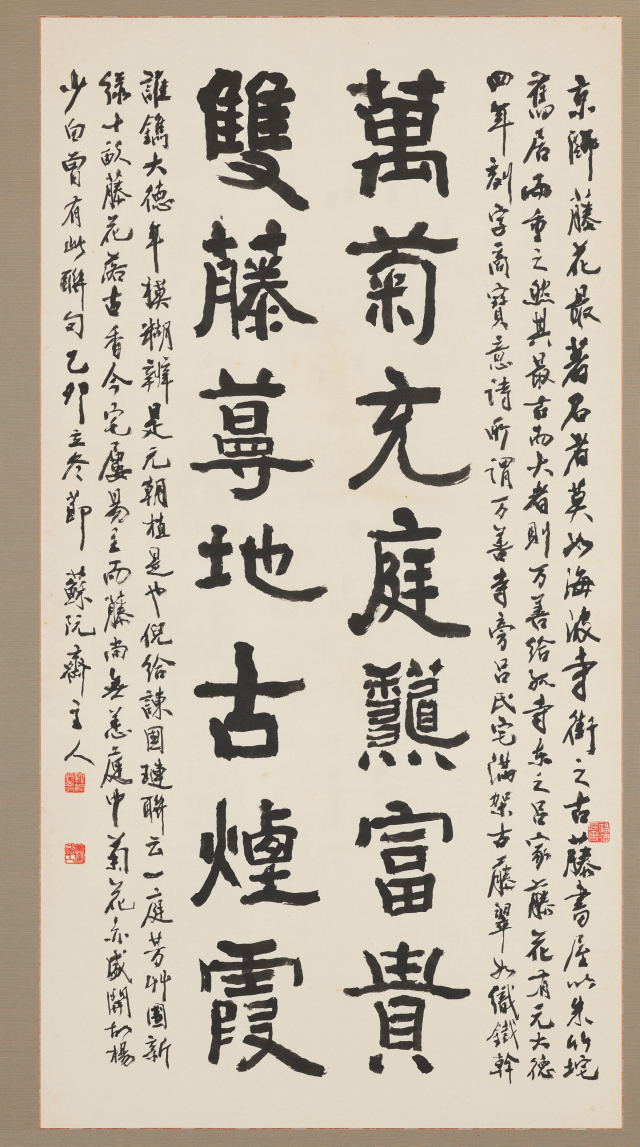 京師藤花最著名者莫如海波寺街之古藤書屋以朱竹垞
舊居而重之然其最古而大者則万善給孤寺东之呂家藤花有元大德
四年刻字商寶意詩所謂万善寺旁呂氏宅滿架古藤翠如織鐵幹
萬菊充庭 富貴
雙藤蕚地古煙霞
誰鐫大德年模糊辨是元朝植是也倪給諫國璉聯云一庭芳艸圍新
綠十畝藤花落古香今宅屢易主而藤尚無恙庭中菊花亦盛開故楊
少白曾有此聯句乙卯立冬節 蘇阮齋主人